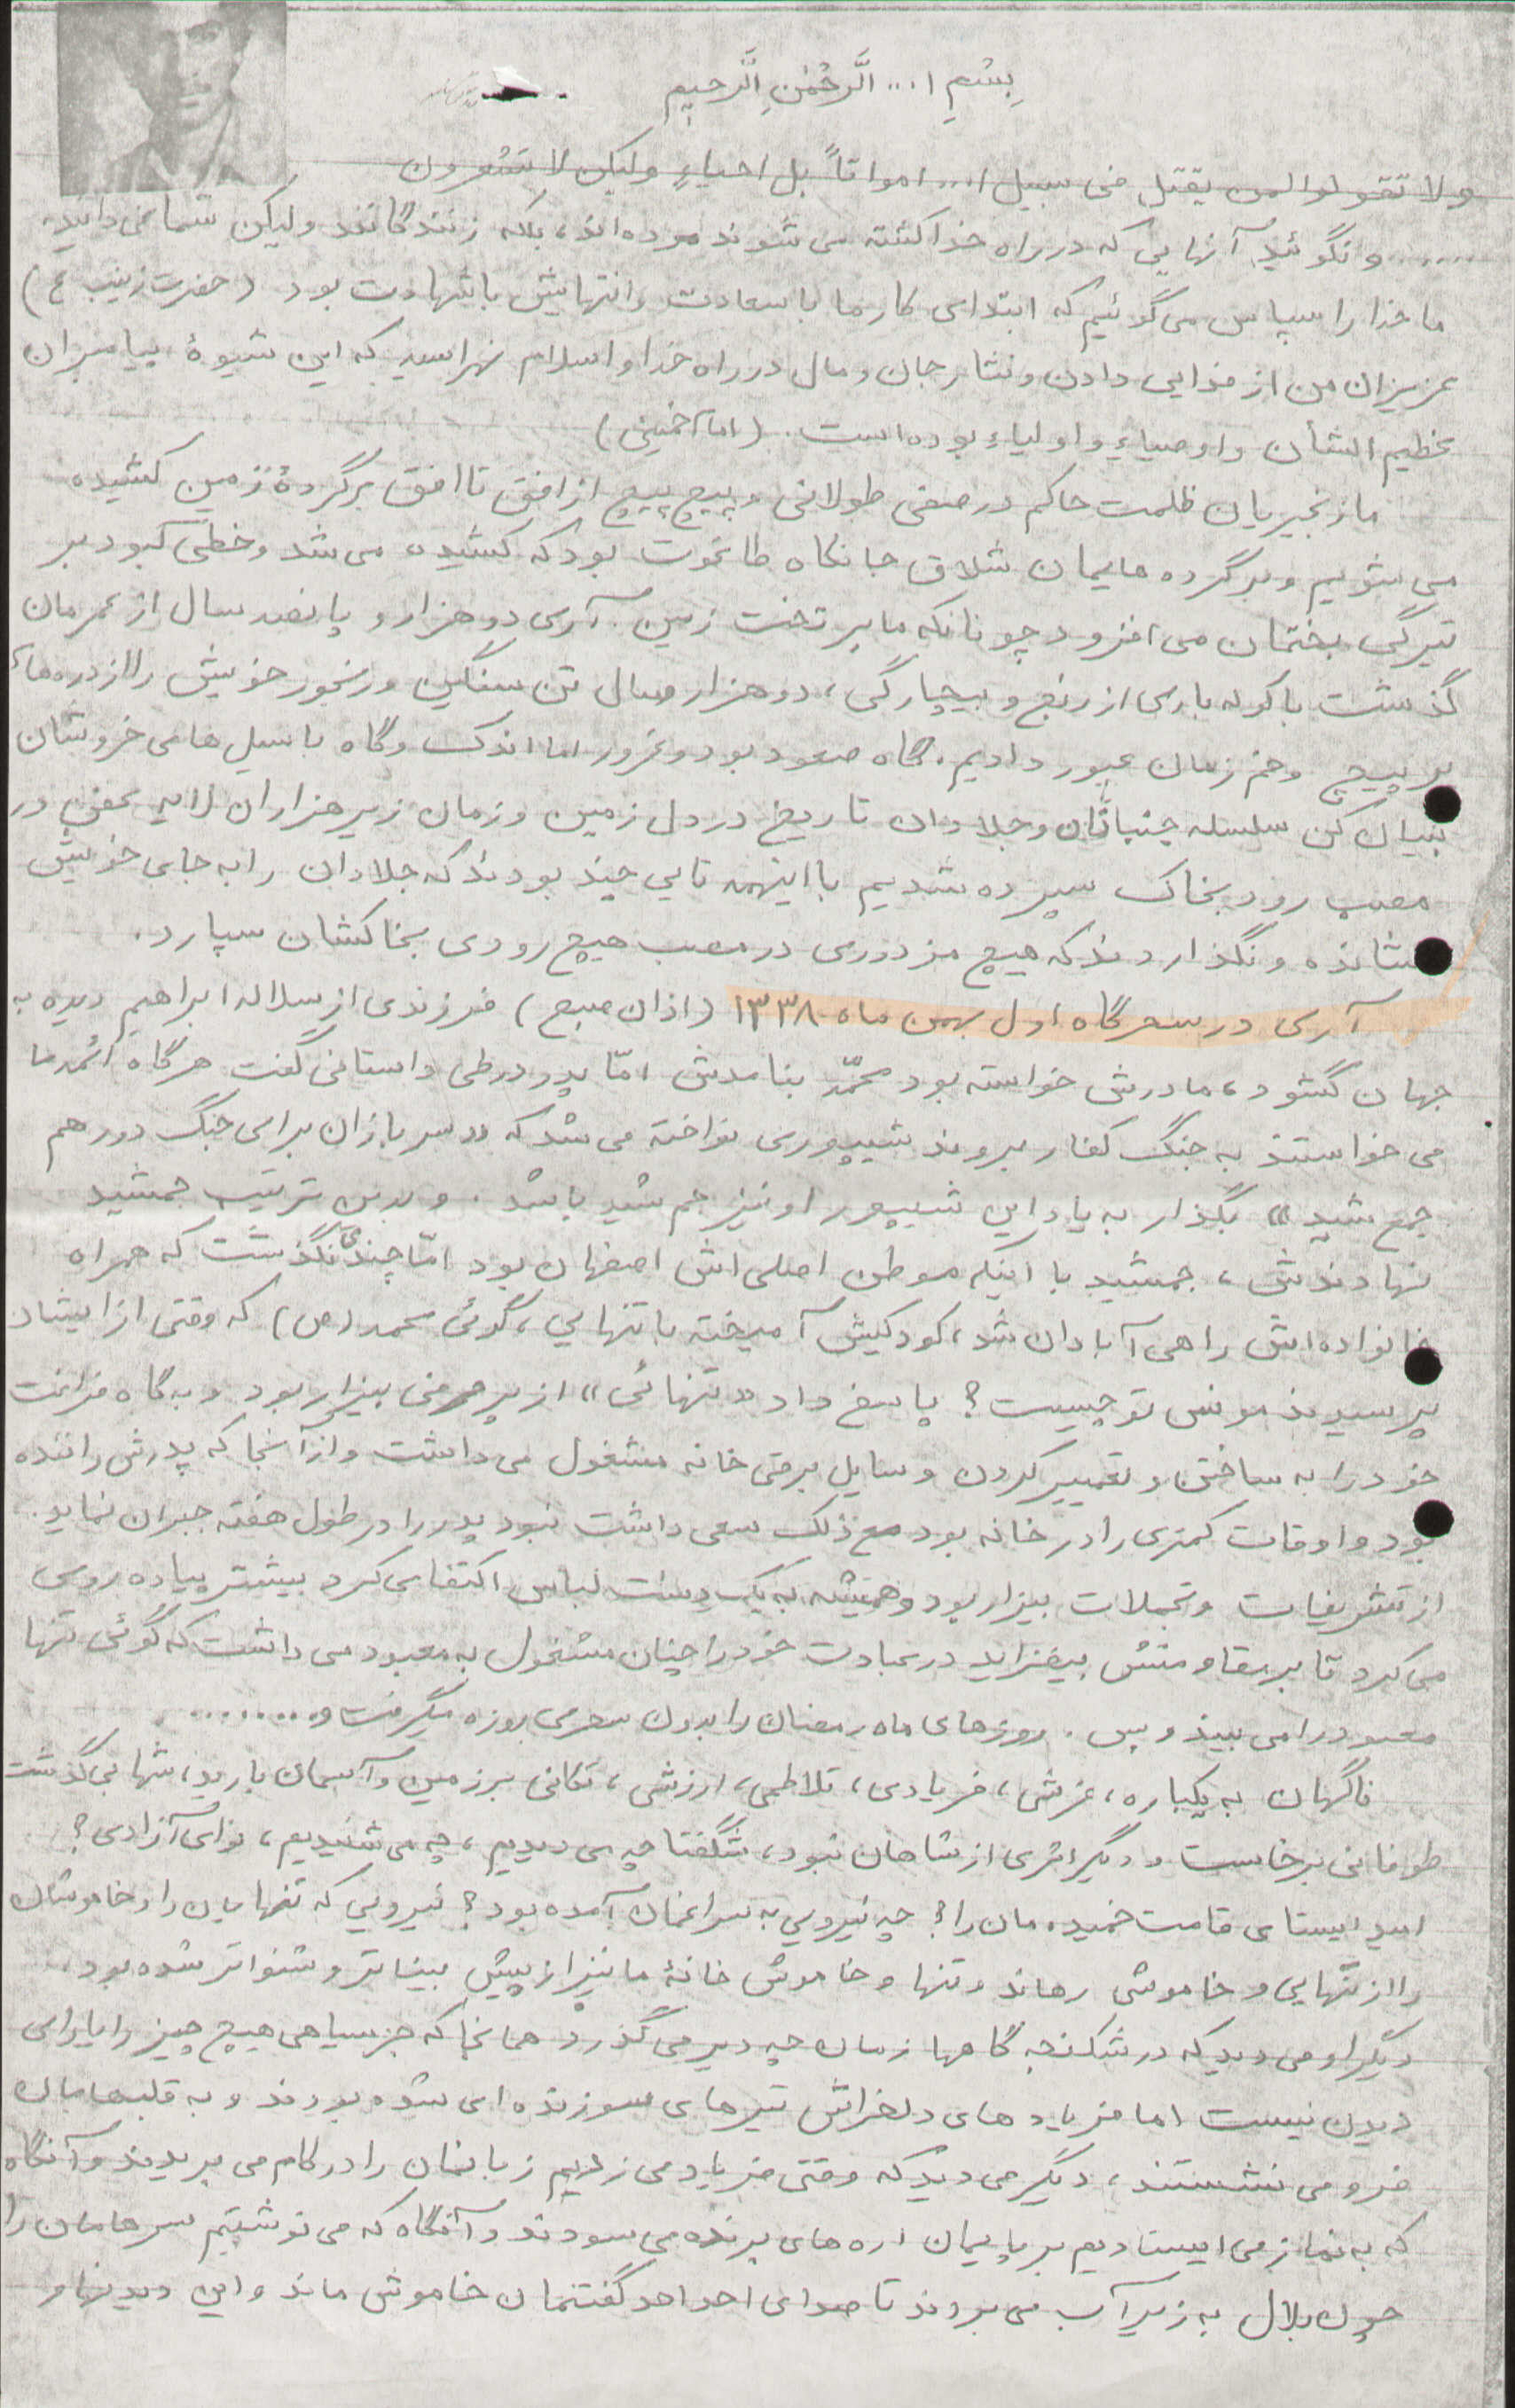 بِسْمِ ا... الَّرحْمٰنِ الَّرحیمِ
ولا تقولوا لمن یقتل فی سبیل ا... امواتاً بل احیاءٍ ولیکن لا تشعرون
...... و نگوئید آنهایی که در راه خدا کشته می شوند مرده اند، بلکه زنندگانند ولیکن شما نمی دانید.
ما خدا را سپاس می گوئیم که ابتدای کار ما با سعادت و انتهایش با شهادت بود (حضرت زینب ع)
عزیزان من از فدایی دادن و نثار جان و مال در راه خدا و اسلام نهراسید که این شیوهٔ پیامبران
عظیم الشأن و اوصیاءِ و اولیاءِ بوده است. (امام خمینی)
ما زنجیریان ظلمت حاکم در صفی طولانی و پیچ پیچ از افق تا افق بر گردهٔ زمین کشیده
می شویم و بر گرده هایمان شلاق جانکاه طاغوت بود که کشیده می شد و خطی کبود بر
تیرگی بختمان می افزود چونانکه ما بر تخت زمین. آری دو هزار و پانصد سال از عمرمان
گذشت با کوله باری از رنج و بیچارگی، دو هزار سال تن سنگین و رنجور خویش را از دره های
پر پیچ و خم زمان عبور دادیم. گاه صعود بود و غرور اما اندک و گاه با سیل های خروشان
بنیان کن سلسله جنبانان و جلادان تاریخ در دل زمین و زمان زیر هزاران لایه عفن در
مصب رود بخاک سپرده شدیم با اینهمه تایی چند بودند که جلادان را به جای خویش
نشانده و نگذاردند که هیچ مزدوری در مصب هیچ رودی بخاکشان سپارد.
آری در سحرگاه اول بهمن ماه ۱۳۳۸ (اذان صبح) فرزندی از سلاله ابراهیم دیده به
جهان گشود، مادرش خواسته بود محمّد بنامدش امّا پدر در طی داستانی گفت هرگاه ائمه ما
می خواستند به جنگ کفار بروند شیپوری نواخته می شد که «سربازان برای جنگ دور هم
جمع شید» بگذار به یاد این شیپور او نیز جم شید باشد. و بدین ترتیب جمشید
نهادندش، جمشید با اینکه موطن اصلی اش اصفهان بود امّا چندی نگذشت که همراه
خانواده اش راهی آبادان شد، کودکیش آمیخته با تنهایی، گوئی محمد (ص) که وقتی از ایشان
پرسیدند مونس تو چیست؟ پاسخ داد «تنهائی» از پر حرفی بیزار بود و به گاه فراغت
خود را به ساختن و تعمیر کردن وسایل برقی خانه مشغول می داشت و از آنجا که پدرش راننده
بود و اوقات کمتری را در خانه بود مع ذلک سعی داشت نبود پدر را در طول هفته جبران نماید.
از تشریفات و تجملات بیزار بود و همیشه به یک دست لباس اکتفا می کرد بیشتر پیاده روی
می کرد تا بر مقاومتش بیفزاید در عبادت خود را چنان مشغول به معبود می داشت که گوئی تنها
معبود را می بیند و بس. روزهای ماه رمضان را بدون سحری روزه میگرفت و........
ناگهان به یکباره، غرش، فریادی، تلاطمی، لرزشی، تکانی بر زمین و آسمان بارید، شهابی گذشت
طوفانی برخاست و دیگر اثری از شاهان نبود، شگفتا چه می دیدیم، چه می شنیدیم، نوای آزادی؟
امید ایستای قامت خمیده مان را؟ چه نیرویی به سراغمان آمده بود؟ نیرویی که تنهایان را و خاموشان
را از تنهایی و خاموشی رهاند و تنها و خاموش خانهٔ ما نیز از پیش بینا تر و شنواتر شده بود.
دیگر او می دید که در شکنجه گاهها زمان چه دیر می گذرد همانجا که جز سیاهی هیچ چیز را یارای
دیدن نیست اما فریادهای دلخراش تیرهای سوزنده ای شده بودند و به قلبهامان
فرو می نشستند، دیگر می دید که وقتی فریاد می زدیم زبانمان را در کام می بریدند و آنگاه
که به نماز می ایستادیم بر پایمان اره های برنده می سودند و آنگاه که می نوشتیم سرهامان را
چون بلال به زیر آب می بردند تا صدای احد احد گفتنمان خاموش ماند و این دیدنها و